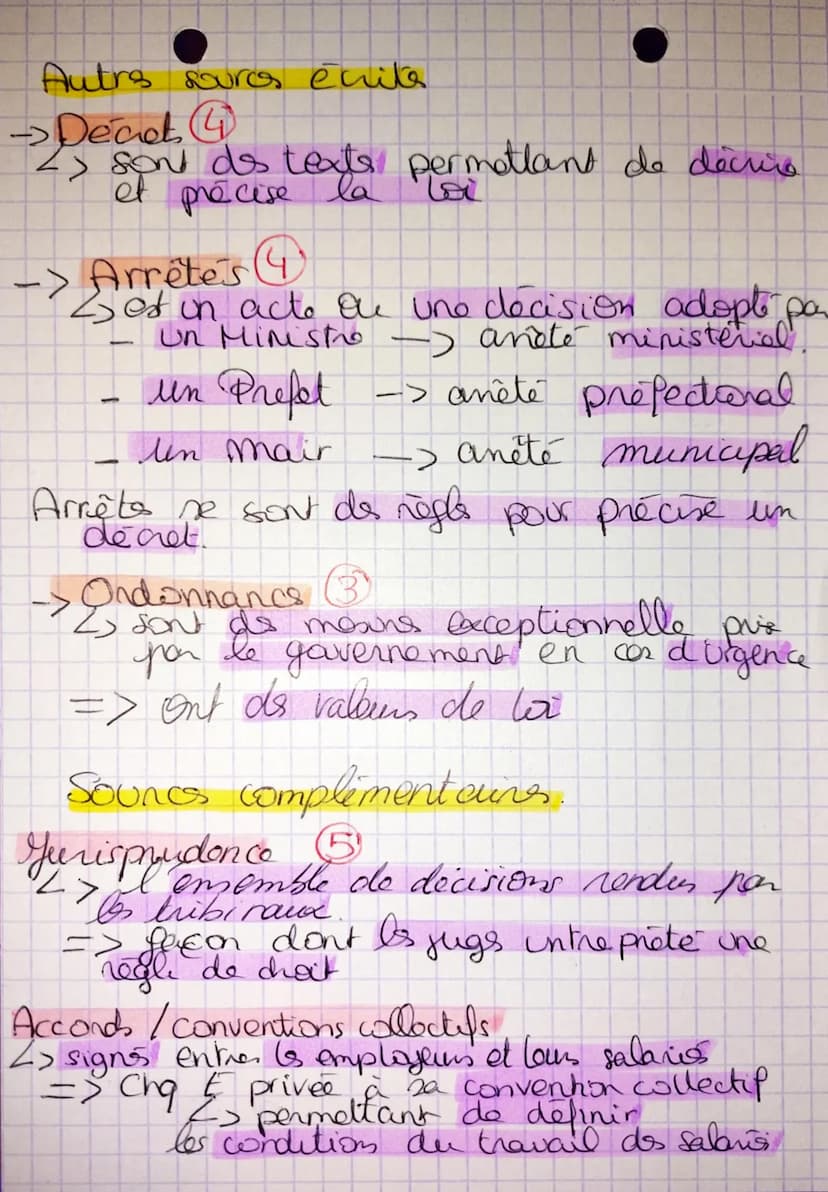 Autres sources écrites
-> Décrets ④
↳ sont des textes permettant de décrire
et précise la loi
-> Arrêtés ④
↳ est un acte ou une décision adopté par
- un Ministre -> arrêté ministériel.
- un Préfet -> arrêté préfectoral
- un mair -> arrêté municipal
Arrêtés se sont des règles pour précisé un
décret.
-> Ordonnances ③
↳ sont des mesures exceptionnelle pris
par le gouvernement en cas d'urgence
=> ont des valeurs de loi
Sources complémentaires.
Jurisprudence ⑤
↳ l'ensemble de décisions rendues par
les tribunaux.
=> façon dont les juges intreprète une
règle de droit
Accords / conventions collectifs
↳ signés entres les employeurs et leurs salariés
=> Chq E privée à sa convention collectif
↳ permettant de définir
les condition du travail des salariés